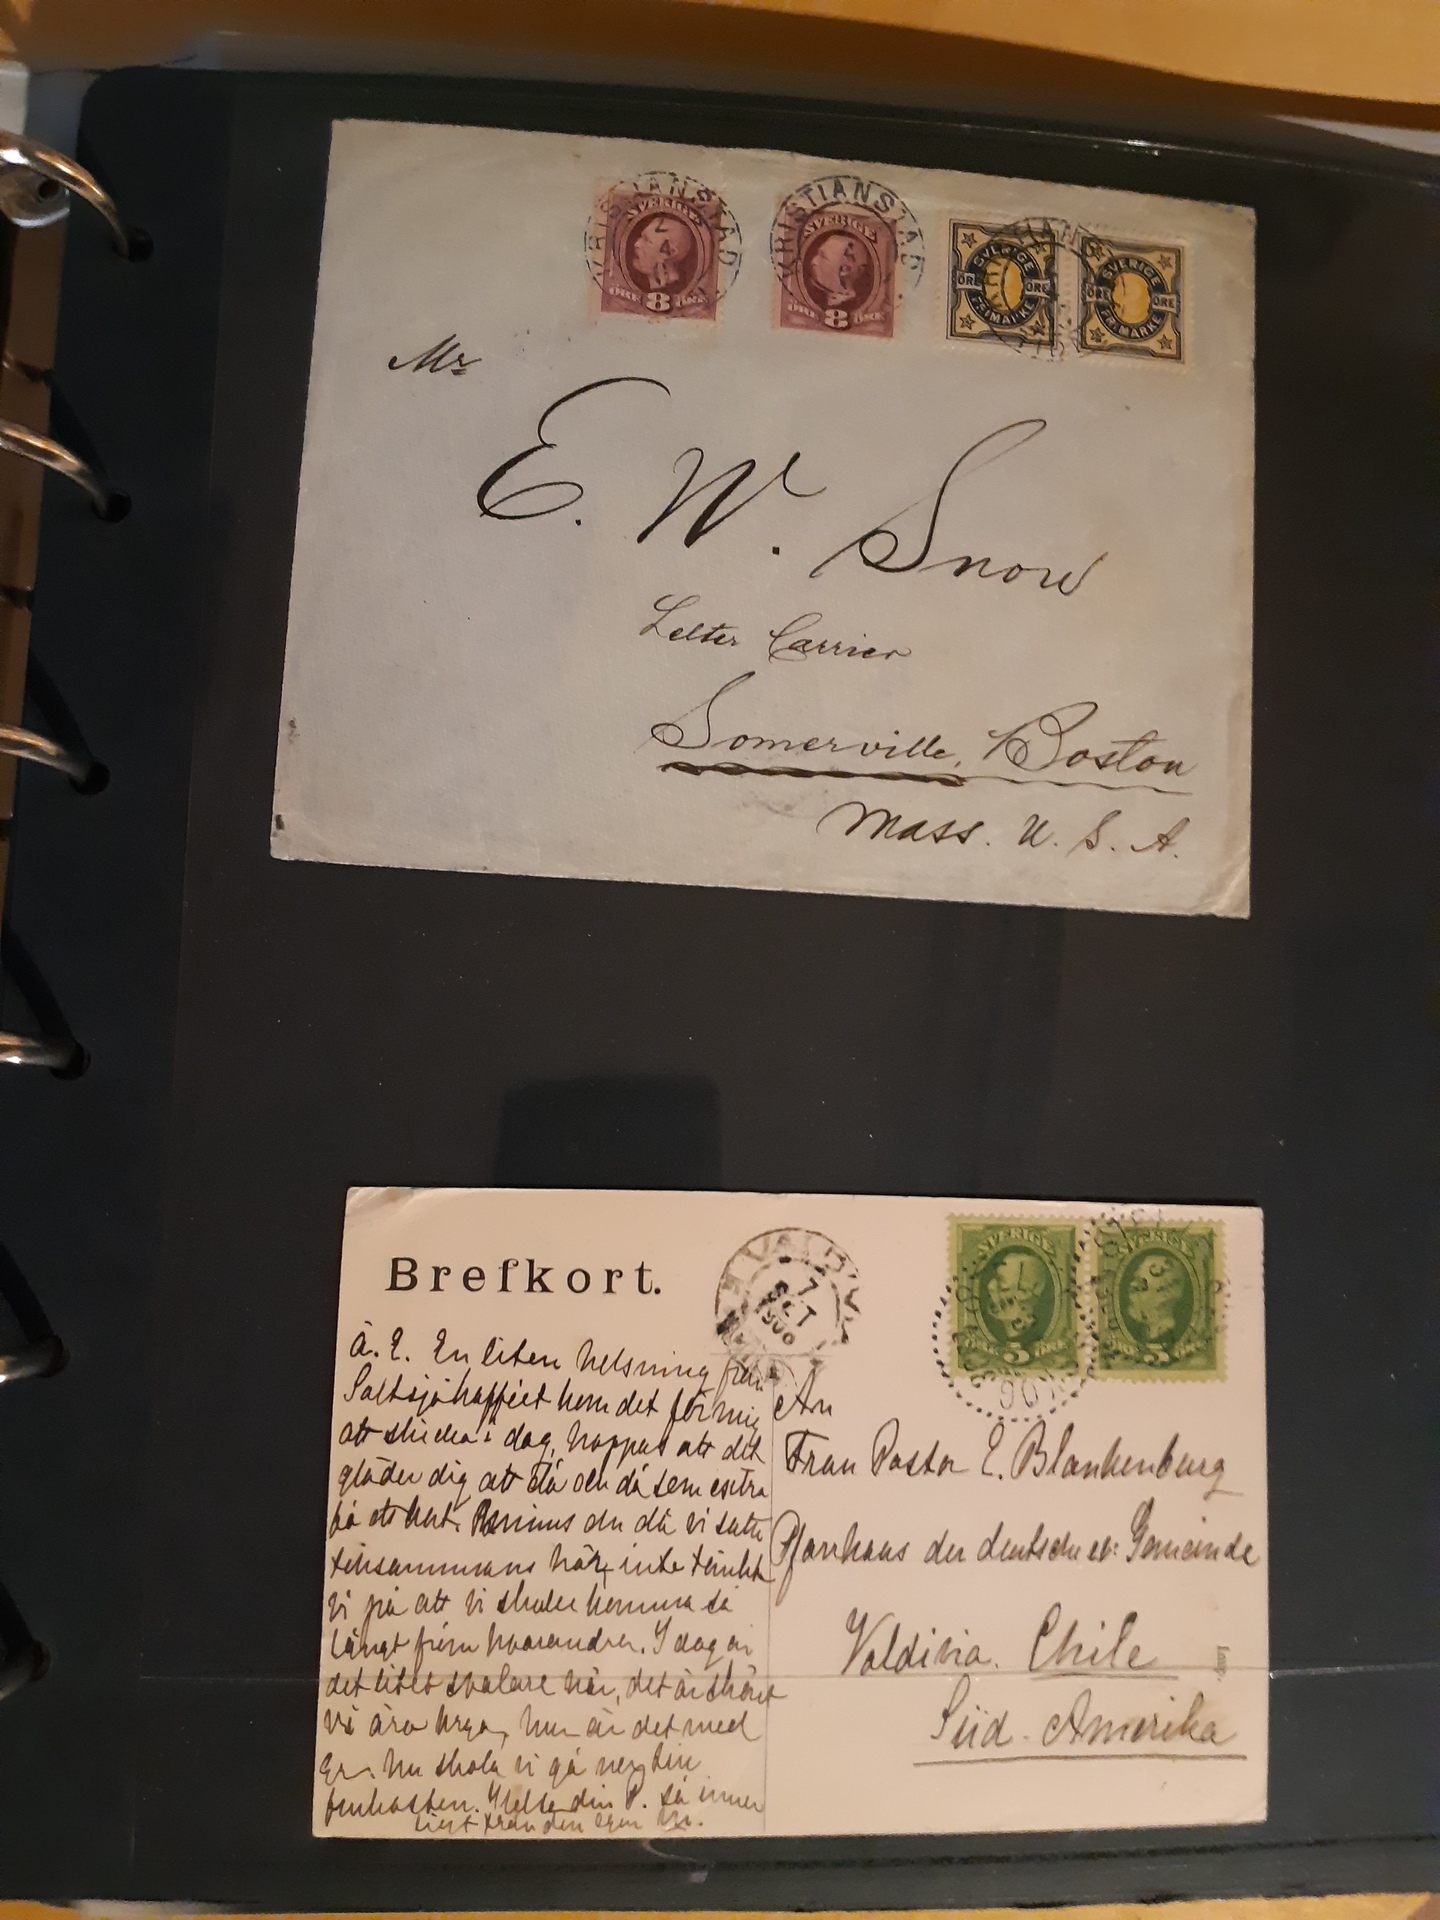 KRISTIANSTAD
KRISTIANSTAD
SVERIGE
8
ÖRE ÖRE
SVERIGE
8
ÖRE ÖRE
SVERIGE
ÖRE ÖRE
FRIMÄRKE
SVERIGE
ÖRE ÖRE
FRIMÄRKE
Mr
E. W. Snow
Letter Carrier
Somerville, Boston
Mass. U. S. A.
Brefkort.
VALDIVIA
7
OCT
1906
SVERIGE
5
ÖRE ÖRE
SVERIGE
5
ÖRE ÖRE
Ä. E. En liten helsning från
det för mig
att skicka i dag, hoppas att det
gläder dig att då och då
på ett kort. du då vi
tillsammans här, inte tänkte
vi på att vi skulle komma så
långt från hvarandra. I dag är
det litet svalare här, det är skönt
vi äro hur är det med
Er. Nu skola vi gå
Helsa din P. så inner
ligt från den egen
An
Frau Pastor E. Blankenburg
Pfarrhaus der deutschen ev. Gemeinde
Valdivia. Chile
Süd-Amerika